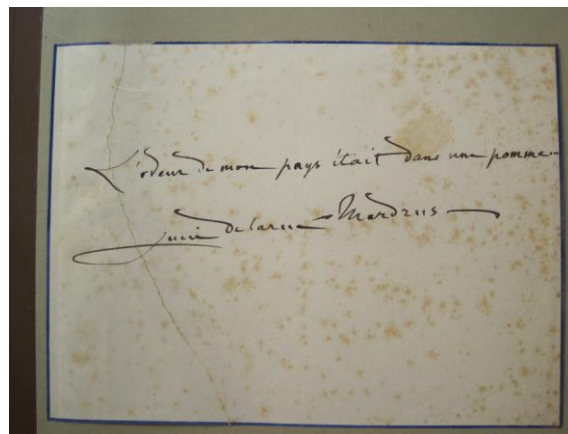 L'odeur de mon pays était dans une pomme.
Lucie Delarue-Mardrus